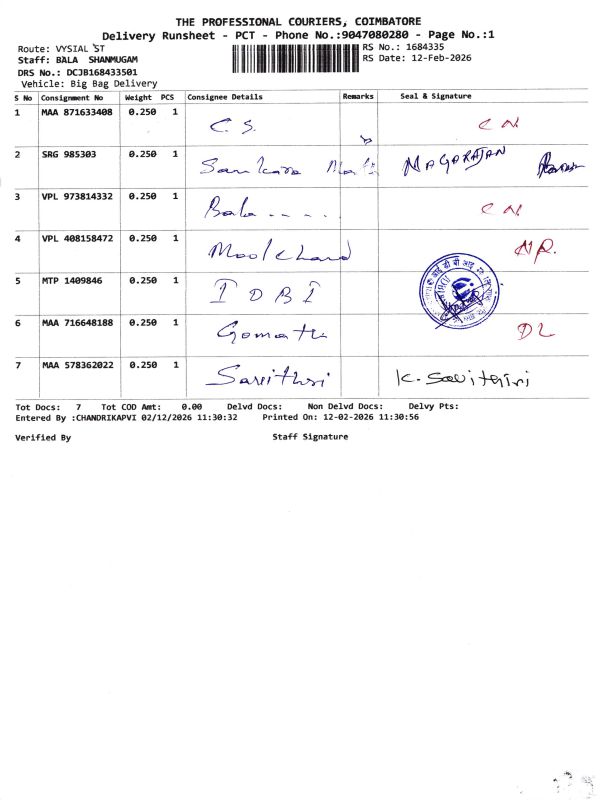 THE PROFESSIONAL COURIERS, COIMBATORE
Delivery Runsheet - PCT - Phone No.:9047080280 - Page No.:1
Route: VYSIAL ST
RS No.: 1684335
Staff: BALA SHANMUGAM
RS Date: 12-Feb-2026
DRS No.: DCJB168433501
Vehicle: Big Bag Delivery
S No Consignment No Weight PCS Consignee Details Remarks Seal & Signature
1 MAA 871633408 0.250 1 C. S. C N
2 SRG 985303 0.250 1 Sankara NAGARAJAN
3 VPL 973814332 0.250 1 Bala - - - - . C N
4 VPL 408158472 0.250 1 Moolchand NR.
5 MTP 1409846 0.250 1 IDBI
6 MAA 716648188 0.250 1 Gomathi DL
7 MAA 578362022 0.250 1 Savithri K. Savithiri
Tot Docs: 7 Tot COD Amt: 0.00 Delvd Docs: Non Delvd Docs: Delvy Pts:
Entered By :CHANDRIKAPVI 02/12/2026 11:30:32 Printed On: 12-02-2026 11:30:56
Verified By Staff Signature